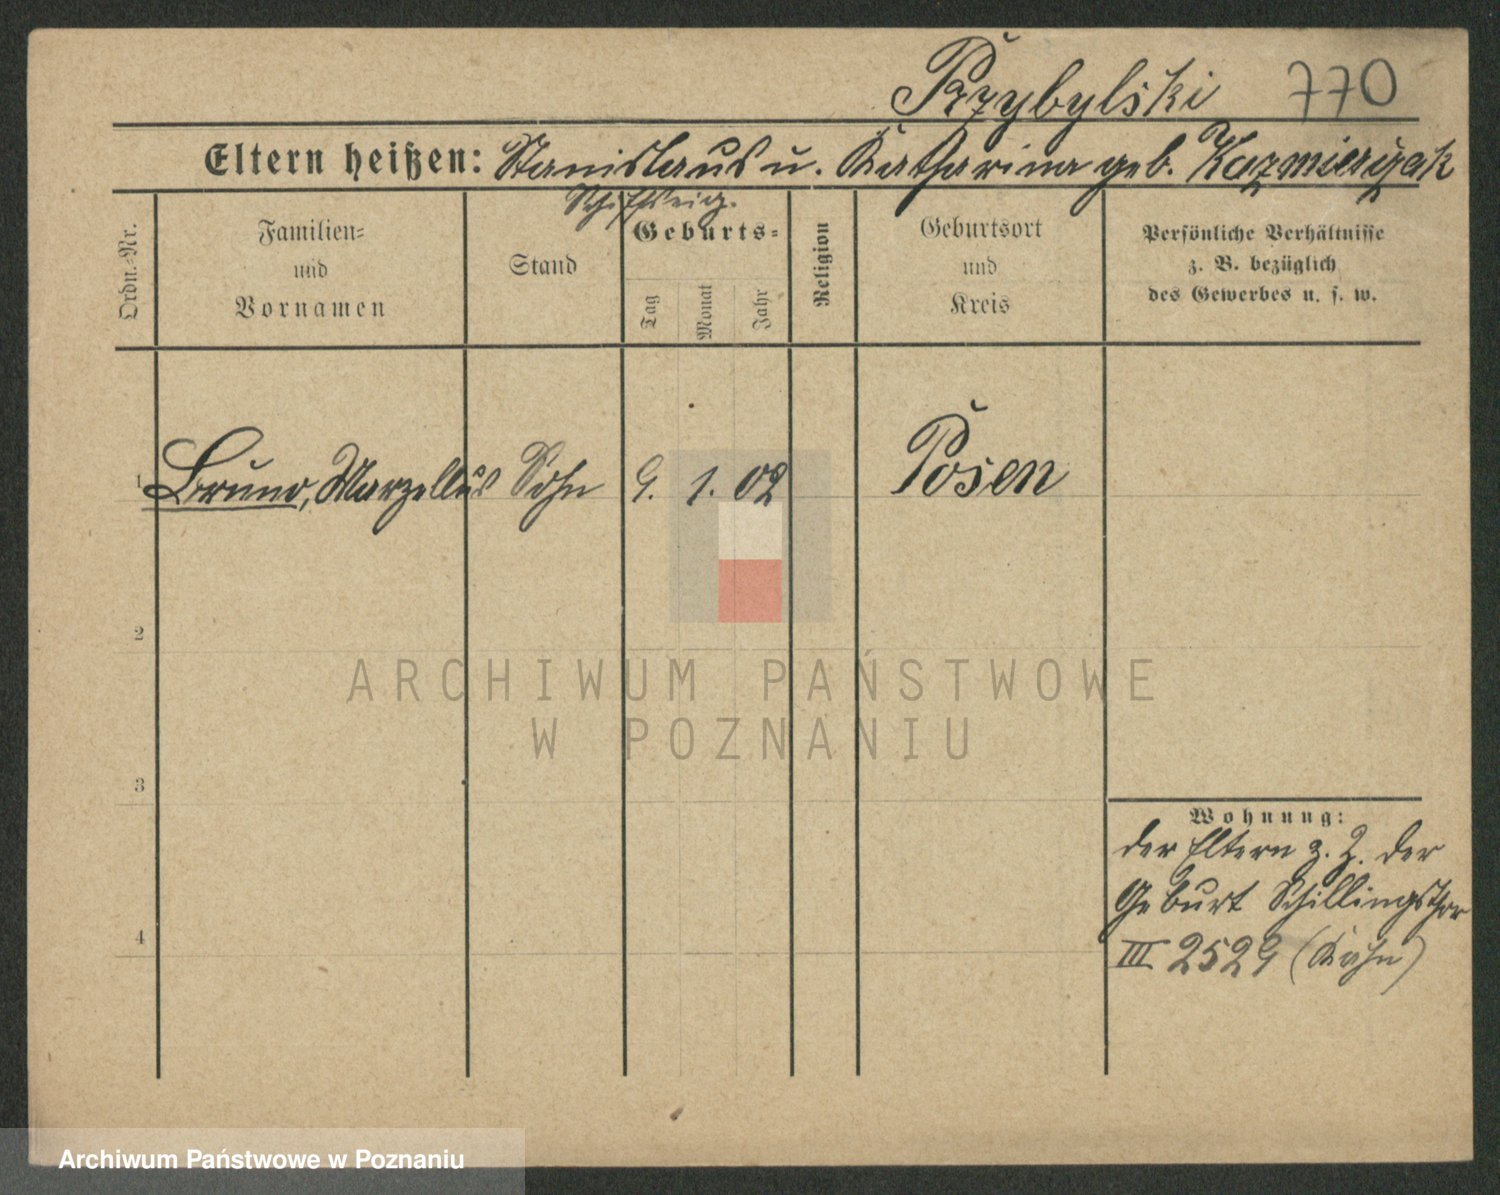 Przybylski 770
Eltern heißen: Stanislaus u. Katharina geb. Kazmierczak
Schiffseig.
Ordn.-Nr.
Familien-
und
Vornamen
Stand
Geburts-
Tag
Monat
Jahr
Religion
Geburtsort
und
Kreis
Persönliche Verhältnisse
z. B. bezüglich
des Gewerbes u. s. w.
1 Bruno, Marzellus Sohn 9. 1. 02 Posen
2
ARCHIWUM PAŃSTWOWE
W POZNANIU
3
Wohnung:
der Eltern z. Z. der
Geburt Schillingsthor
4
III 2529 (Kahn)
Archiwum Państwowe w Poznaniu